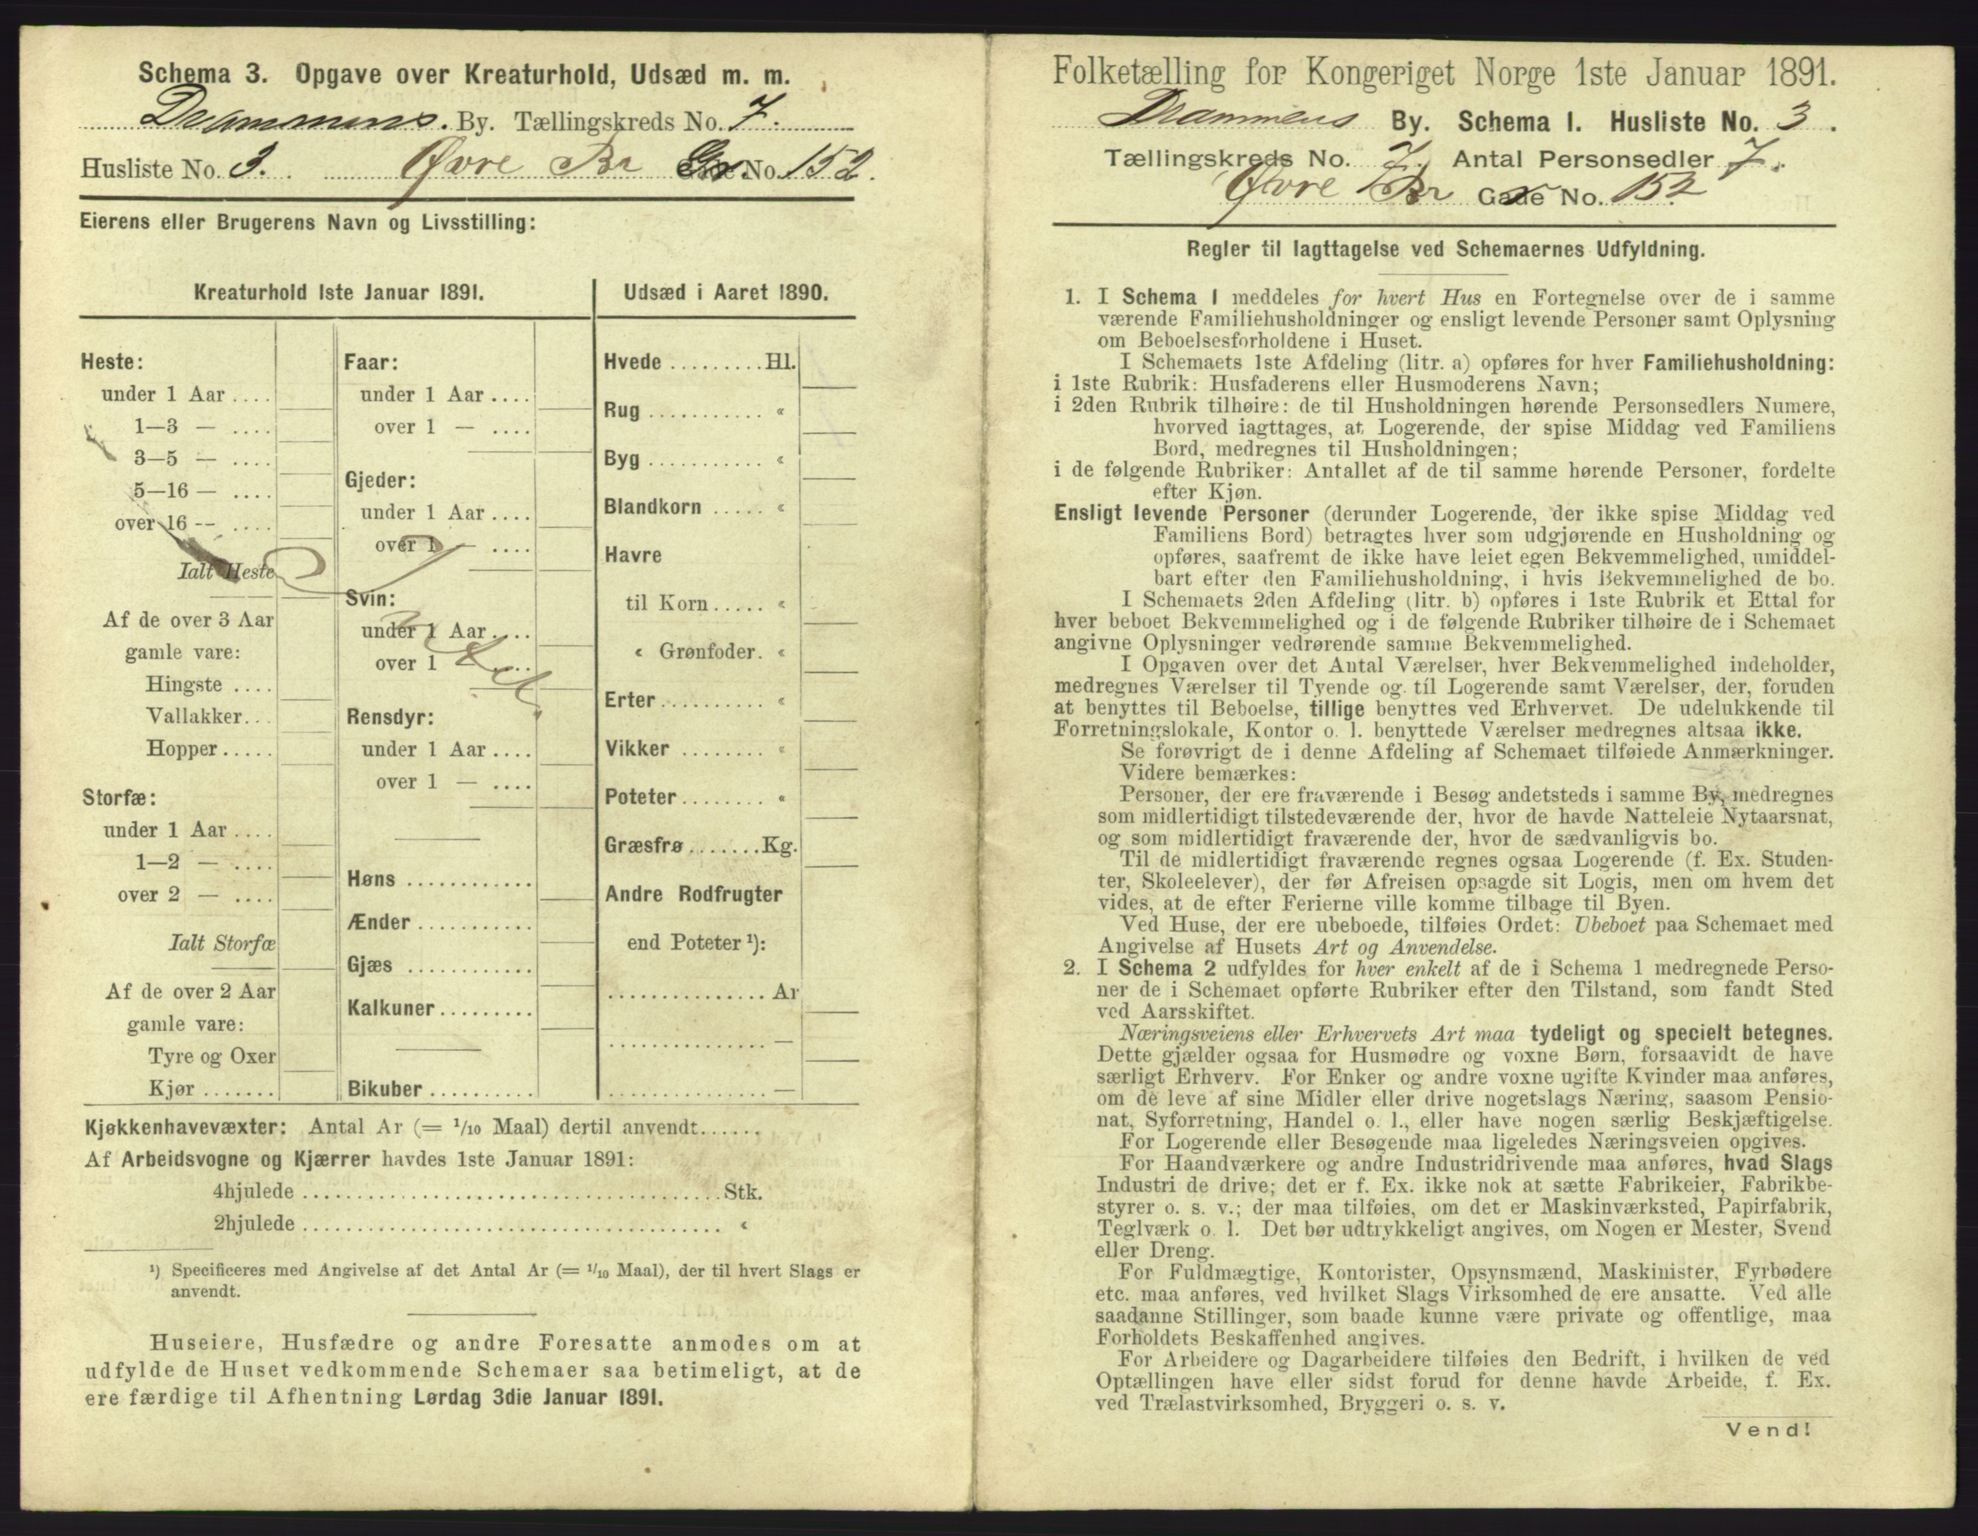 Schema 3. Opgave over Kreaturhold, Udsæd m. m.
Drammens. By. Tællingskreds No. 7.
Husliste No. 3. Øvre Br Gr. No. 152.
Eierens eller Brugerens Navn og Livsstilling:
Kreaturhold 1ste Januar 1891.
Heste:
under 1 Aar ....
1—3 — ....
3—5 — ....
5—16 — ....
over 16 — ....
Ialt Heste
Af de over 3 Aar
gamle vare:
Hingste ....
Vallakker...
Hopper.....
Storfæ:
under 1 Aar ....
1—2 — ....
over 2 — ....
Ialt Storfæ
Af de over 2 Aar
gamle vare:
Tyre og Oxer
Kjør .......
Faar:
under 1 Aar ....
over 1 — ....
Gjeder:
under 1 Aar ....
over 1 — ....
Svin:
under 1 Aar ....
over 1 — ....
Rensdyr:
under 1 Aar ....
over 1 — ....
Høns ............
Ænder ...........
Gjæs ............
Kalkuner.........
Bikuber ..........
Udsæd i Aaret 1890.
Hvede .........Hl.
Rug ........... «
Byg ........... «
Blandkorn ..... «
Havre
til Korn ..... «
« Grønfoder. «
Erter .......... «
Vikker ........ «
Poteter........ «
Græsfrø.......Kg.
Andre Rodfrugter
end Poteter ¹):
............... Ar
............... —
............... —
Kjøkkenhavevæxter: Antal Ar (= 1/10 Maal) dertil anvendt......
Af Arbeidsvogne og Kjærrer havdes 1ste Januar 1891:
4hjulede ........................................ Stk.
2hjulede ........................................ «
¹) Specificeres med Angivelse af det Antal Ar (= 1/10 Maal), der til hvert Slags er
anvendt.
Huseiere, Husfædre og andre Foresatte anmodes om at
udfylde de Huset vedkommende Schemaer saa betimeligt, at de
ere færdige til Afhentning Lørdag 3die Januar 1891.
Folketælling for Kongeriget Norge 1ste Januar 1891.
Drammens By. Schema I. Husliste No. 3.
Tællingskreds No. 7. Antal Personsedler 7.
Øvre Br Gade No. 152
Regler til Iagttagelse ved Schemaernes Udfyldning.
1. I Schema 1 meddeles for hvert Hus en Fortegnelse over de i samme
værende Familiehusholdninger og ensligt levende Personer samt Oplysning
om Beboelsesforholdene i Huset.
I Schemaets 1ste Afdeling (litr. a) opføres for hver Familiehusholdning:
i 1ste Rubrik: Husfaderens eller Husmoderens Navn;
i 2den Rubrik tilhøire: de til Husholdningen hørende Personsedlers Numere,
hvorved iagttages, at Logerende, der spise Middag ved Familiens
Bord, medregnes til Husholdningen;
i de følgende Rubriker: Antallet af de til samme hørende Personer, fordelte
efter Kjøn.
Ensligt levende Personer (derunder Logerende, der ikke spise Middag ved
Familiens Bord) betragtes hver som udgjørende en Husholdning og
opføres, saafremt de ikke have leiet egen Bekvemmelighed, umiddel-
bart efter den Familiehusholdning, i hvis Bekvemmelighed de bo.
I Schemaets 2den Afdeling (litr. b) opføres i 1ste Rubrik et Ettal for
hver beboet Bekvemmelighed og i de følgende Rubriker tilhøire de i Schemaet
angivne Oplysninger vedrørende samme Bekvemmelighed.
I Opgaven over det Antal Værelser, hver Bekvemmelighed indeholder,
medregnes Værelser til Tyende og til Logerende samt Værelser, der, foruden
at benyttes til Beboelse, tillige benyttes ved Erhvervet. De udelukkende til
Forretningslokale, Kontor o. l. benyttede Værelser medregnes altsaa ikke.
Se forøvrigt de i denne Afdeling af Schemaet tilføiede Anmærkninger.
Videre bemærkes:
Personer, der ere fraværende i Besøg andetsteds i samme By, medregnes
som midlertidigt tilstedeværende der, hvor de havde Natteleie Nytaarsnat,
og som midlertidigt fraværende der, hvor de sædvanligvis bo.
Til de midlertidigt fraværende regnes ogsaa Logerende (f. Ex. Studen-
ter, Skoleelever), der før Afreisen opsagde sit Logis, men om hvem det
vides, at de efter Ferierne ville komme tilbage til Byen.
Ved Huse, der ere ubeboede, tilføies Ordet: Ubeboet paa Schemaet med
Angivelse af Husets Art og Anvendelse.
2. I Schema 2 udfyldes for hver enkelt af de i Schema 1 medregnede Perso-
ner de i Schemaet opførte Rubriker efter den Tilstand, som fandt Sted
ved Aarsskiftet.
Næringsveiens eller Erhvervets Art maa tydeligt og specielt betegnes.
Dette gjælder ogsaa for Husmødre og voxne Børn, forsaavidt de have
særligt Erhverv. For Enker og andre voxne ugifte Kvinder maa anføres,
om de leve af sine Midler eller drive nogetslags Næring, saasom Pensio-
nat, Syforretning, Handel o. l., eller have nogen særlig Beskjæftigelse.
For Logerende eller Besøgende maa ligeledes Næringsveien opgives.
For Haandværkere og andre Industridrivende maa anføres, hvad Slags
Industri de drive; det er f. Ex. ikke nok at sætte Fabrikeier, Fabrikbe-
styrer o. s. v.; der maa tilføies, om det er Maskinværksted, Papirfabrik,
Teglværk o. l. Det bør udtrykkeligt angives, om Nogen er Mester, Svend
eller Dreng.
For Fuldmægtige, Kontorister, Opsynsmænd, Maskinister, Fyrbødere
etc. maa anføres, ved hvilket Slags Virksomhed de ere ansatte. Ved alle
saadanne Stillinger, som baade kunne være private og offentlige, maa
Forholdets Beskaffenhed angives.
For Arbeidere og Dagarbeidere tilføies den Bedrift, i hvilken de ved
Optællingen have eller sidst forud for denne havde Arbeide, f. Ex.
ved Trælastvirksomhed, Bryggeri o. s. v.
Vend!